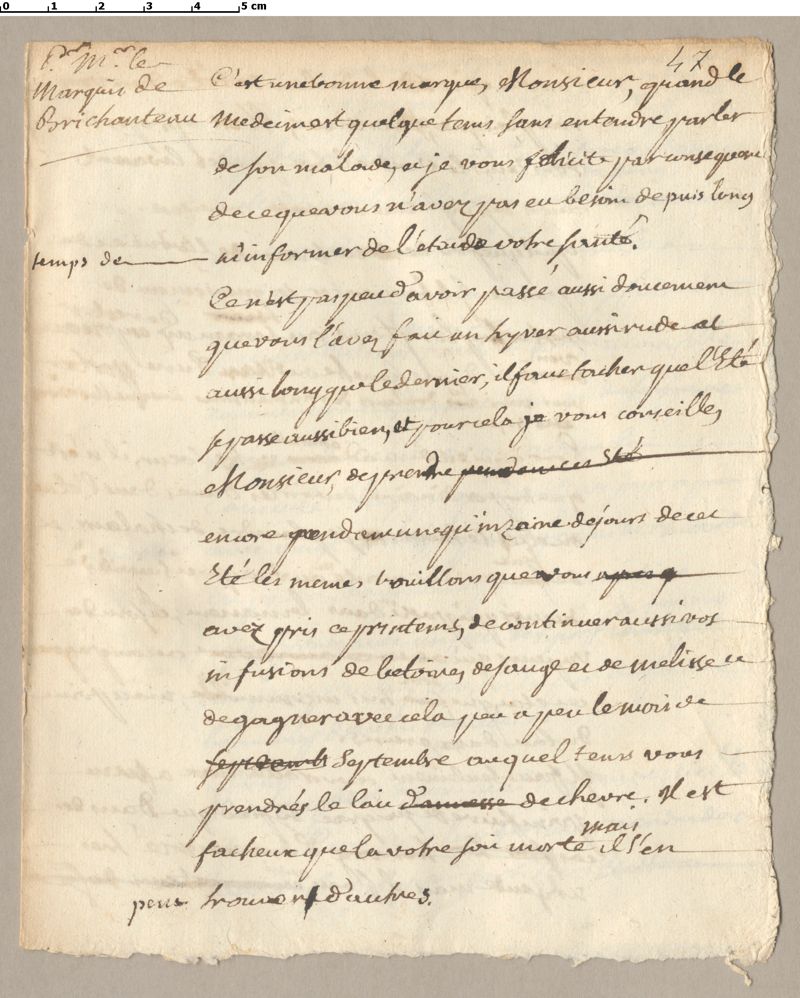 0 1 2 3 4 5 cm
47
Pr. Mr. le
Marquis de
Brichanteau
C'est une bonne marque, Monsieur, quand le
Medecin est quelque tems sans entendre parler
de son malade, et je vous felicite par consequent
de ce que vous n'avez pas eu besoin depuis long
temps de m'informer de l'etat de votre santé.
Ce n'est pas peu d'avoir passé aussi doucement
que vous l'avez fait un hyver aussi rude et
aussi long que le dernier, il faut tacher que l'Eté
se passe aussi bien, et pour cela je vous conseille,
Monsieur, de prendre pendant cet Eté
encore pendant une quinzaine de jours de cet
Eté les memes bouillons que vous
avez pris ce printems, de continuer aussi vos
infusions de betoine, de sauge et de melisse et
de gagner avec cela peu a peu le mois de
septemb Septembre auquel tems vous
prendrés le lait d'annesse de chevre. Il est
facheux que la votre soit morte mais il s'en
peut trouver d'autres.